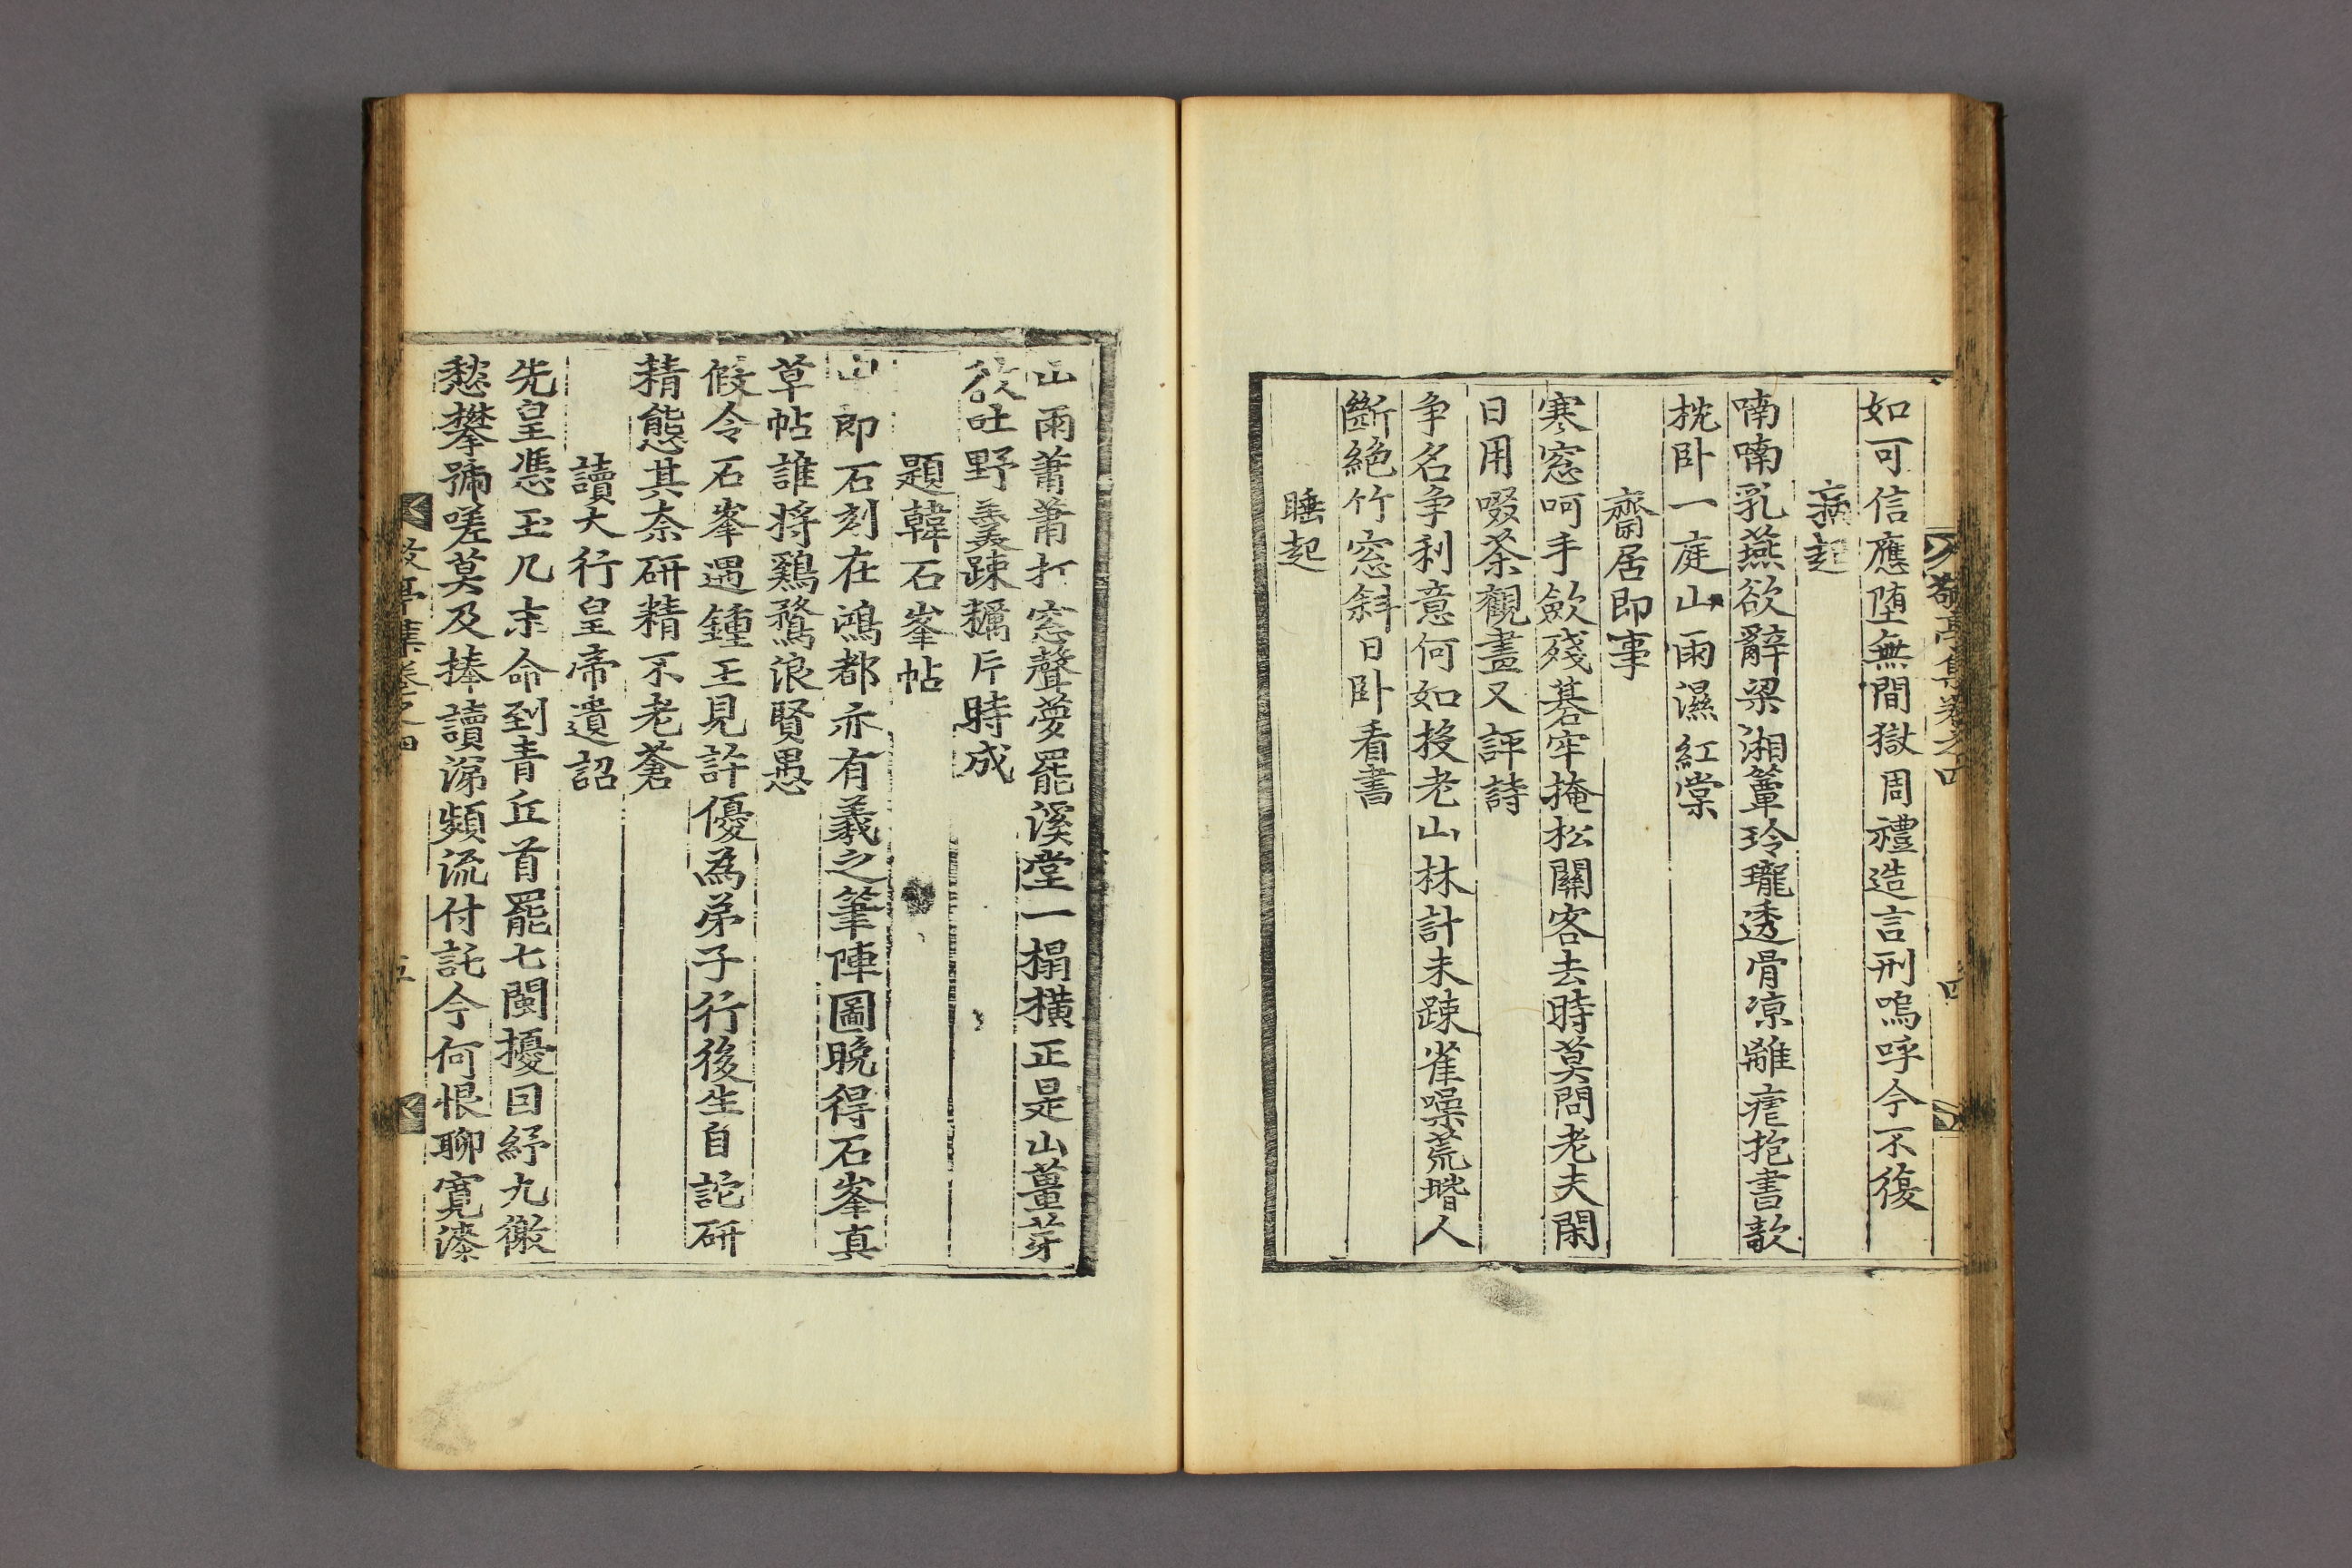 敬亭集卷之四
四
如可信應墮無間獄周禮造言刑嗚呼今不復
病起
喃喃乳燕欲辭梁湘簟玲瓏透骨凉離瘧抱書欹
枕卧一庭山雨濕紅棠
齋居即事
寒窓呵手斂殘碁牢掩松關客去時莫問老夫閑
日用啜茶觀畫又評詩
爭名爭利意何如投老山林計未踈雀噪荒堦人
斷絶竹窓斜日卧看書
睡起
山雨蕭蕭打窓聲夢罷溪堂一榻橫正是山薑芽
欲吐野羹踈糲片時成
題韓石峯帖
山 即石刻在鴻都亦有羲之筆陣圖晩得石峯真
草帖誰将鷄鶩浪賢愚
假令石峯遇鍾王見許優為弟子行後生自詑研
精態其奈研精不老蒼
讀大行皇帝遺詔
先皇憑玉几末命到青丘首罷七閩擾囙紓九徼
愁攀號嗟莫及捧讀涕頻流付託今何恨聊寬漆
敬亭集卷之四
五